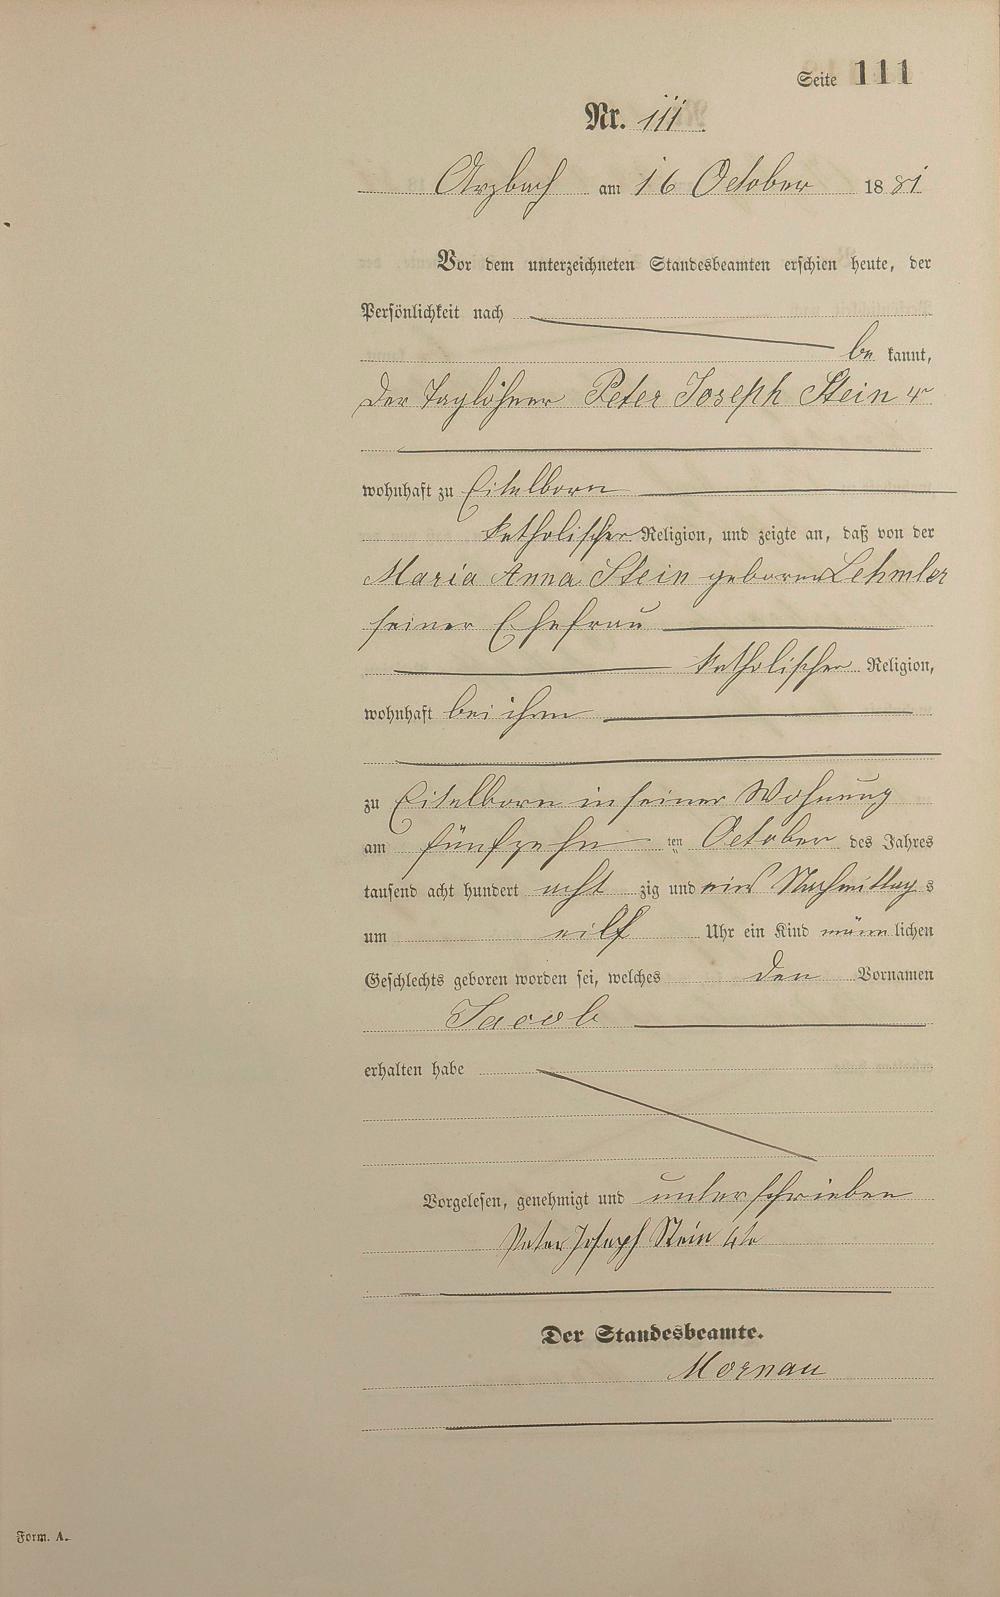 Seite 111
Nr. 111.
Arzbach am 16 October 1881
Vor dem unterzeichneten Standesbeamten erschien heute, der
Persönlichkeit nach
be kannt,
der Taglöhner Peter Joseph Stein 4r
wohnhaft zu Eitelborn
katholischer Religion, und zeigte an, daß von der
Maria Anna Stein geborene Lehmler
seiner Ehefrau
katholischer Religion,
wohnhaft bei ihm
zu Eitelborn in seiner Wohnung
am fünfzehn ten October des Jahres
tausend acht hundert acht zig und eins Nachmittag s
um eilf Uhr ein Kind männ lichen
Geschlechts geboren worden sei, welches den Vornamen
Jacob
erhalten habe
Vorgelesen, genehmigt und unterschrieben
Peter Joseph Stein 4te
Der Standesbeamte.
Mornau
Form. A.